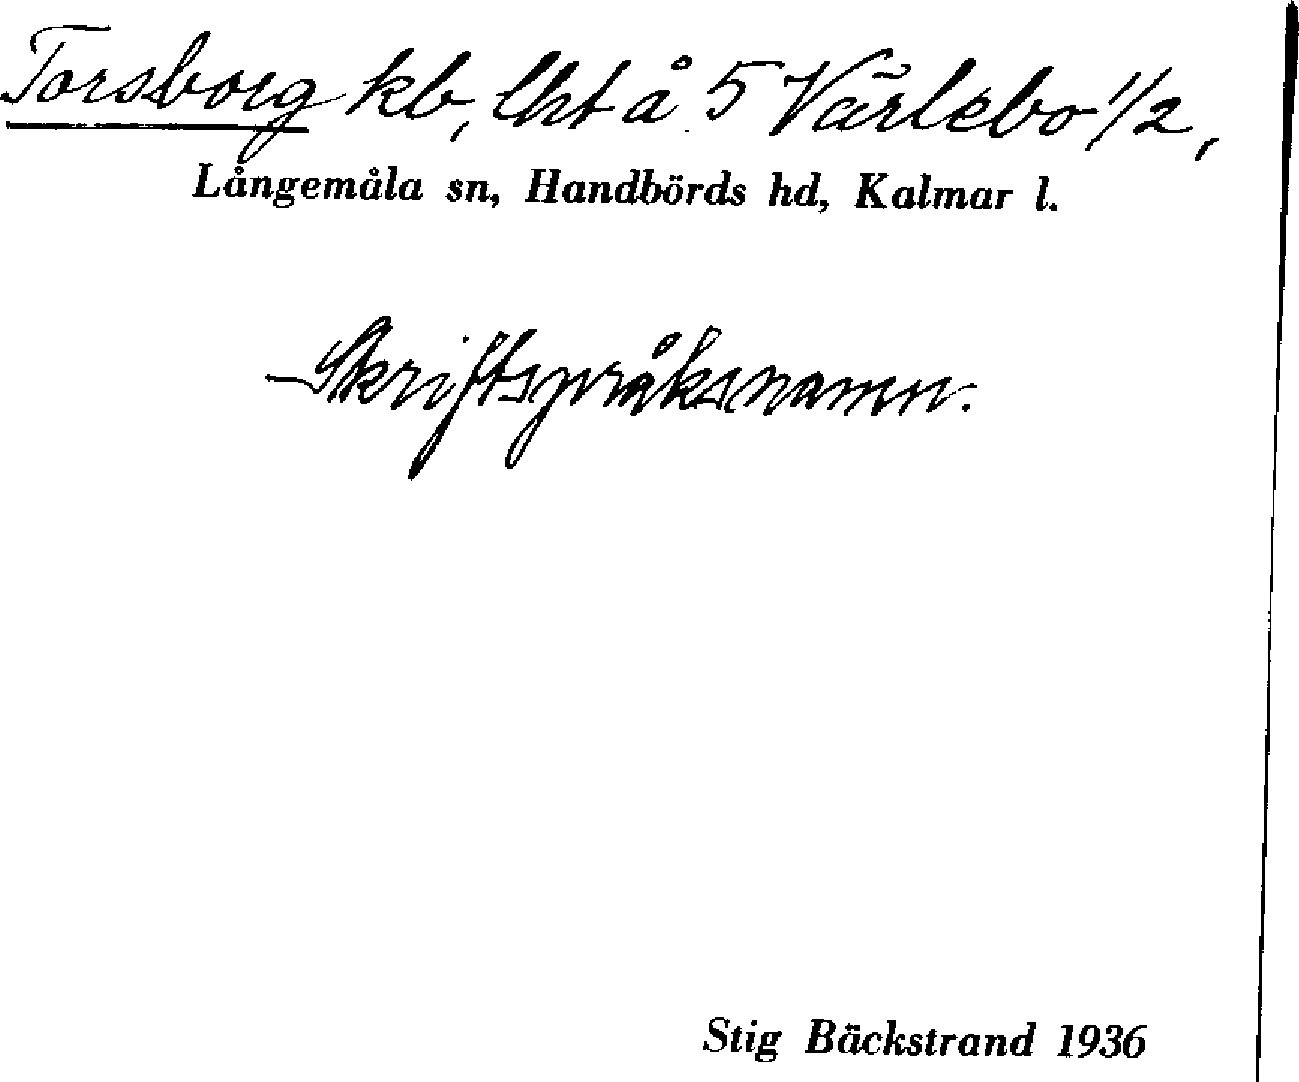 Torsborg kb, lht å 5 Värlebo 1/2,
Långemåla sn, Handbörds hd, Kalmar l.
Skriftspråksnamn.
Stig Bäckstrand 1936